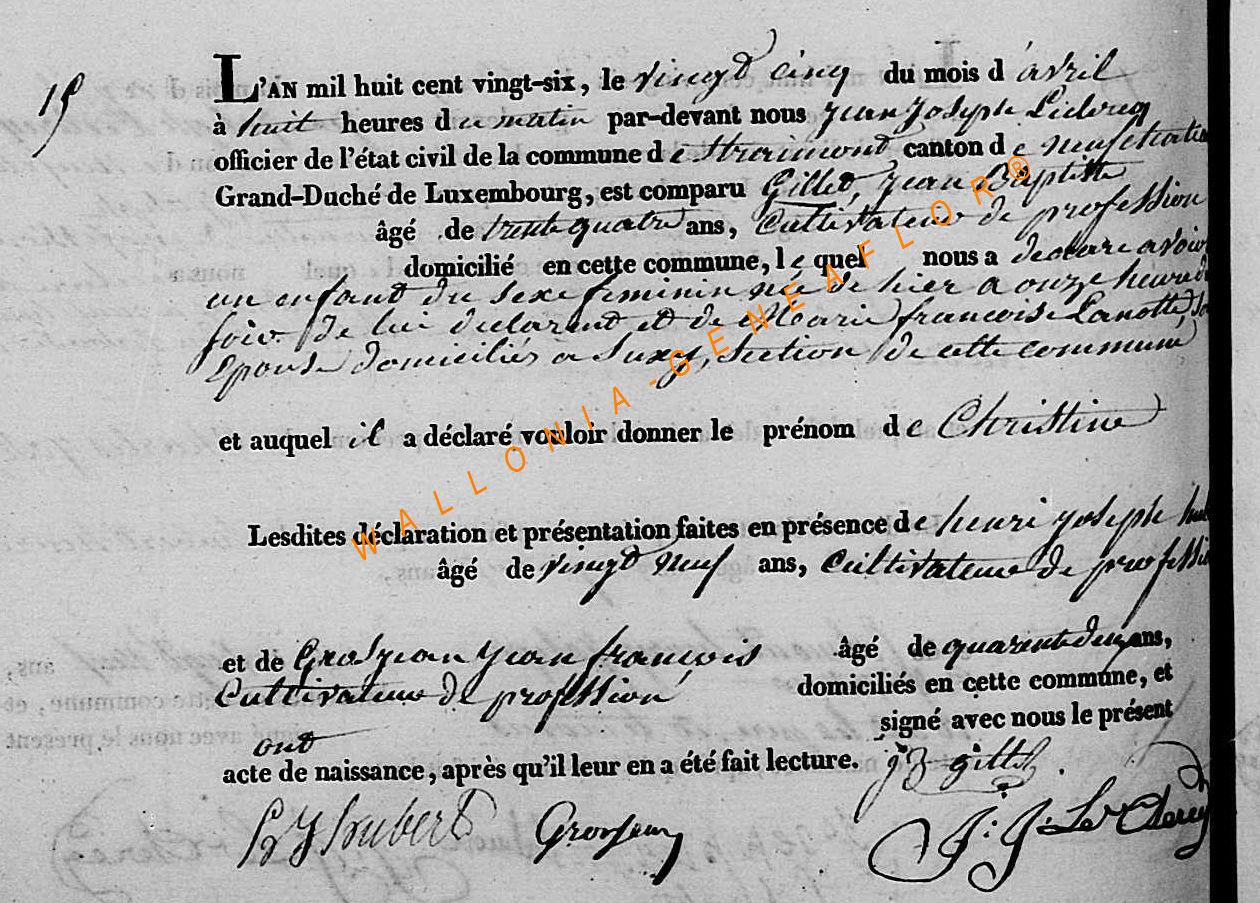 15
L'AN mil huit cent vingt-six, le vingt cinq du mois d'avril
à huit heures du matin par-devant nous jean joseph Leclercq
officier de l'état civil de la commune de Straimont canton de neufchateau
Grand-Duché de Luxembourg, est comparu Gillet, jean Baptiste
âgé de trente quatre ans, cultivateur de profession
domicilié en cette commune, lequel nous a déclaré avoir
un enfant du sexe feminin née de hier a onze heure du
soir de lui declarant et de Marie francoise Lanotte, son
Epouse domiciliés à Suxy, section de cette commune
et auquel il a déclaré vouloir donner le prénom de Christine
Lesdites déclaration et présentation faites en présence de henri joseph
âgé de vingt neuf ans, cultivateur de profession
et de Grosjean jean francois âgé de quarente deux ans,
Cultivateur de profession domiciliés en cette commune, et
ont signé avec nous le présent
acte de naissance, après qu'il leur en a été fait lecture. jB gillet
hJ hubert Grosjean J: J: Le Clercq
WALLONIA-GENEAFLOR®